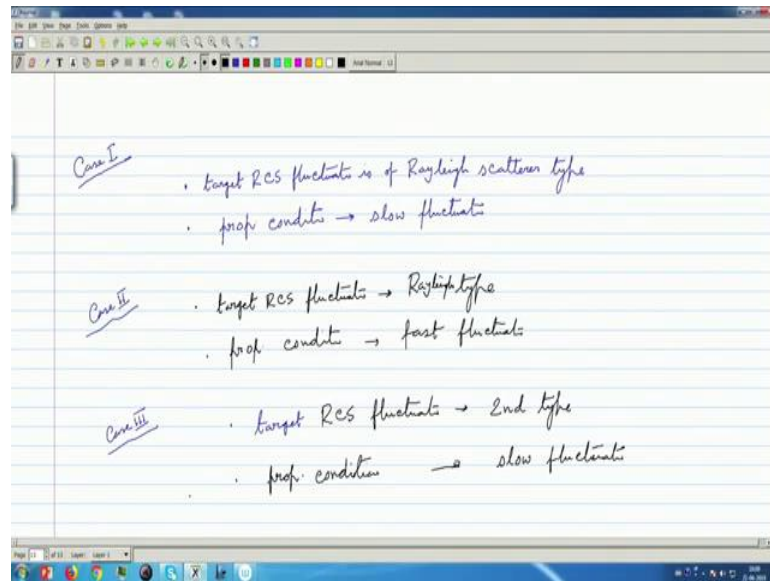 File Edit View Page Tools Options Help
Case I
. target RCS fluctuatn is of Rayleigh scatterer type
. prop conditn → slow fluctuatn
Case II
. target RCS fluctuatn → Rayleigh type
. prop conditn → fast fluctuatn
Case III
. target RCS fluctuatn → 2nd type
. prop. condition → slow fluctuatn
Page 13 of 13 Layer: Layer 1